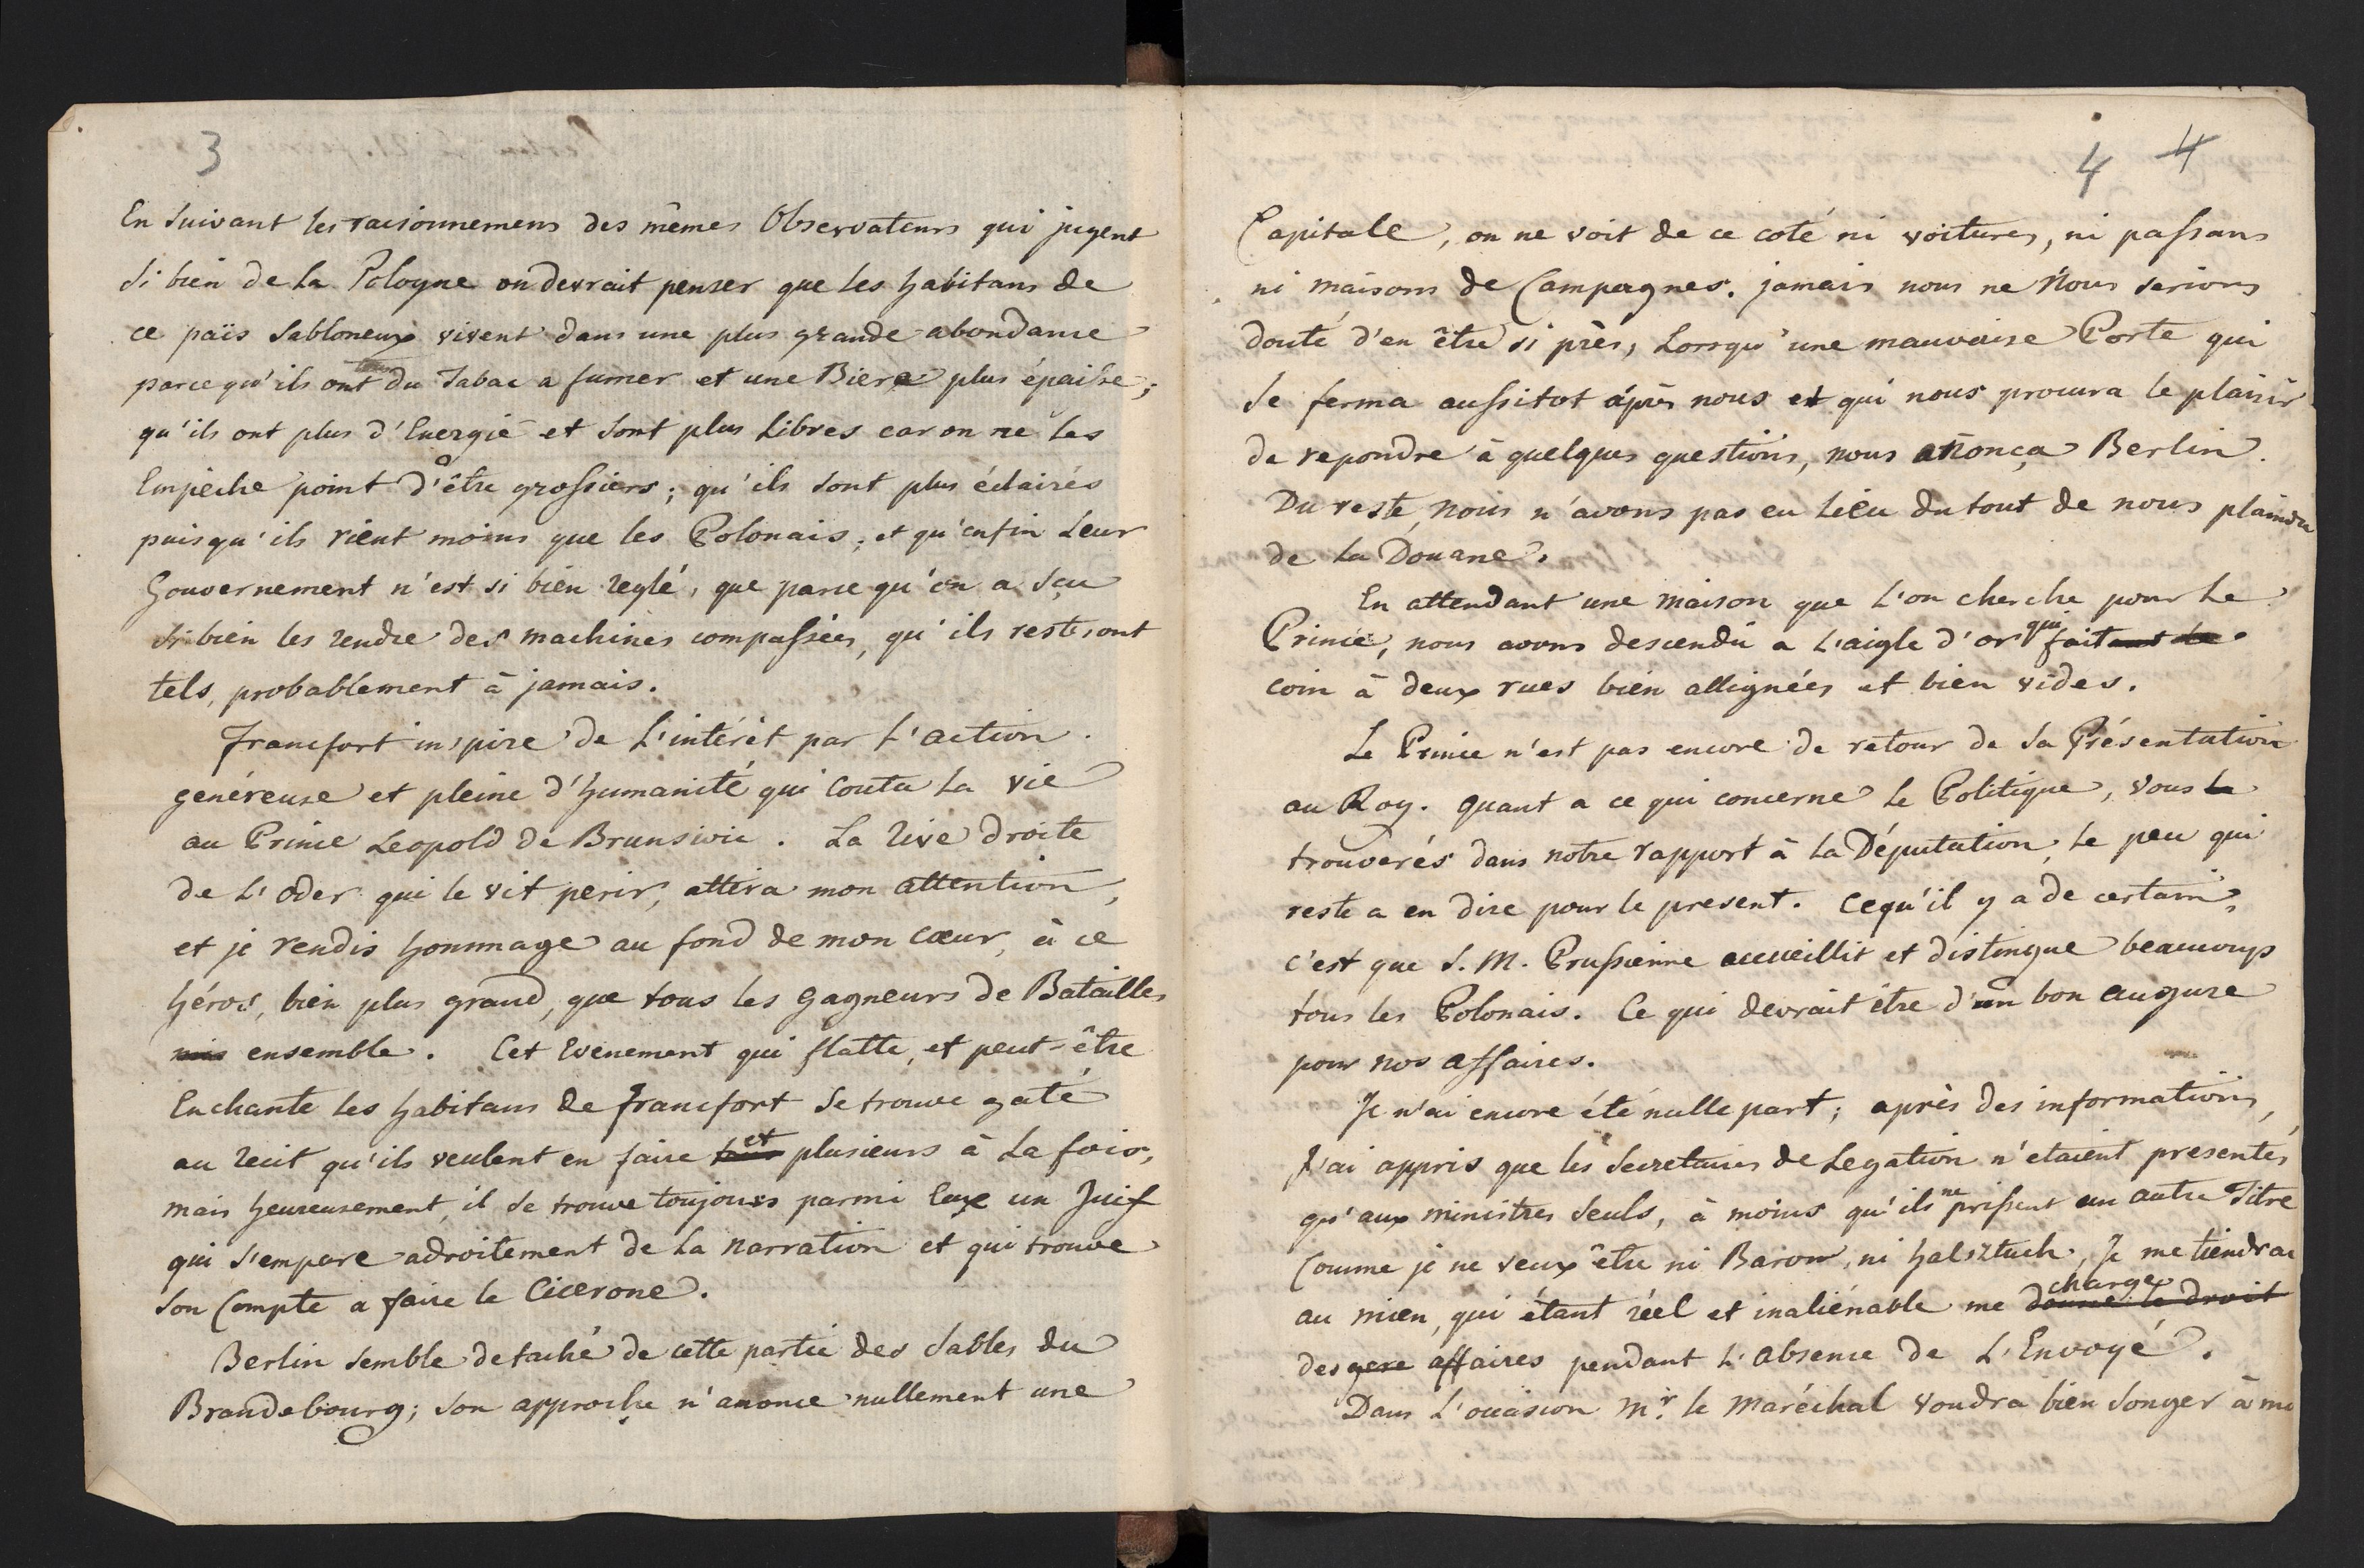 3
En suivant les raisonnemens des mêmes Observateurs qui jugent
si bien de la Pologne on devrait penser que les habitans de
ce païs Sabloneux vivent dans une plus grande abondance
parce qu'ils ont du Tabac a fumer et une Biere plus épaisse;
qu'ils ont plus d'Energie et sont plus Libres car on ne les
Empêche point d'être grossiers; qu'ils sont plus éclairés
puisqu'ils rient moins que les Polonais; et qu'enfin Leur
Gouvernement n'est si bien reglé, que parce qu'on a sçu
si bien les rendre des machines compassées, qu'ils resteront
tels, probablement à jamais.
Francfort inspire de L'intérêt par L'action
genéreuse et pleine d'humanité qui Couta la vie
au Prince Leopold de Brunswic. La rive droite
de L'Oder qui le vit perir, attira mon attention,
et je rendis hommage au fond de mon cœur, à ce
héros, bien plus grand, que tous les gagneurs de Batailles
mis ensemble. Cet Evenement qui flatte, et peut-être
Enchante les habitans de francfort se trouve gaté
au recit qu'ils veulent en faire et plusieurs à La fois,
mais heureusement, il se trouve toujours parmi Eux un Juif
qui s'empare adroitement de La narration et qui trouve
son Compte a faire le Cicerone.
Berlin semble detaché de cette partie des Sables du
Brandebourg; son approche n'anonce nullement une
4 4
Capitale, on ne voit de ce coté ni voitures, ni passans
ni maisons de Campagnes. jamais nous ne nous serions
douté d'en être si près, Lorsqu'une mauvaise Porte qui
se ferma aussitot après nous et qui nous procura le plaisir
de repondre à quelques questions, nous anonça Berlin.
Du reste, nous n'avons pas eu lieu du tout de nous plaindre
de la Douane.
En attendant une maison que L'on cherche pour Le
Prince, nous avons descendu a L'aigle d'or qui faitant le
coin à deux rues bien allignées et bien vides.
Le Prince n'est pas encore de retour de sa Présentation
au Roy. quant a ce qui concerne le Politique, vous le
trouverés dans notre rapport à La Députation, le peu qui
reste a en dire pour le present. Cequ'il y a de certain,
c'est que S. M. Prussienne accueillit et distingue beaucoup
tous les Polonais. Ce qui devrait être d'un bon augure
pour nos affaires.
Je n'ai encore été nulle part; après des informations,
J'ai appris que les Secretaires de Legation n'etaient presentés
qu'aux ministres seuls, à moins qu'ils ne prissent un autre Titre
Comme je ne veux être ni Baron, ni halsztuch, Je me tiendrai
au mien, qui étant réel et inaliénable me charge donne le droit
des gere affaires pendant L'absence de L'Envoyé.
Dans L'occasion Mr. le Maréchal voudra bien songer à me